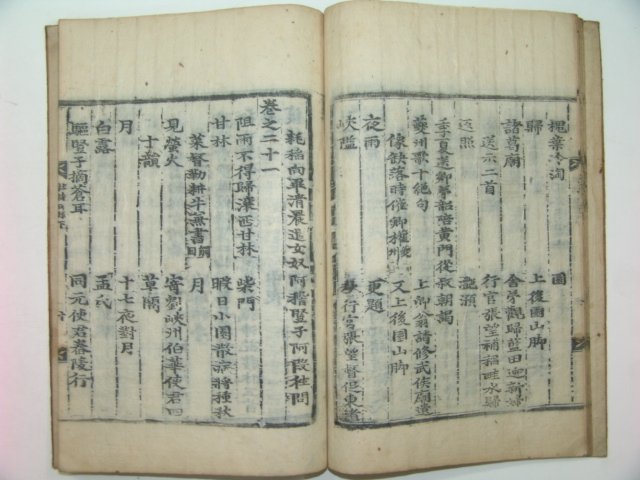 槐葉冷淘 園
歸 上後園山脚
諸葛廟 舍弟觀歸藍田迎新婦
送示二首 行官張望補稻畦水歸
返照 灔澦
季夏送鄉弟韶陪黃門從叔朝謁
夔州歌十絕句 上卿翁請修武侯廟遺
像缺落時崔卿權夔州 又上後園山脚
夜雨 更題
峽隘 行官張望督促東渚
耗稻向畢清晨遣女奴阿稽豎子阿段往問
卷之二十一
阻雨不得歸瀼西甘林 柴門
甘林 暇日小園散病將種秋
菜督勒耕牛兼書觸目
見螢火 寄劉峽州伯華使君四
十韻 草閣
月 十七夜對月
白露 孟氏
驅豎子摘蒼耳 同元使君舂陵行